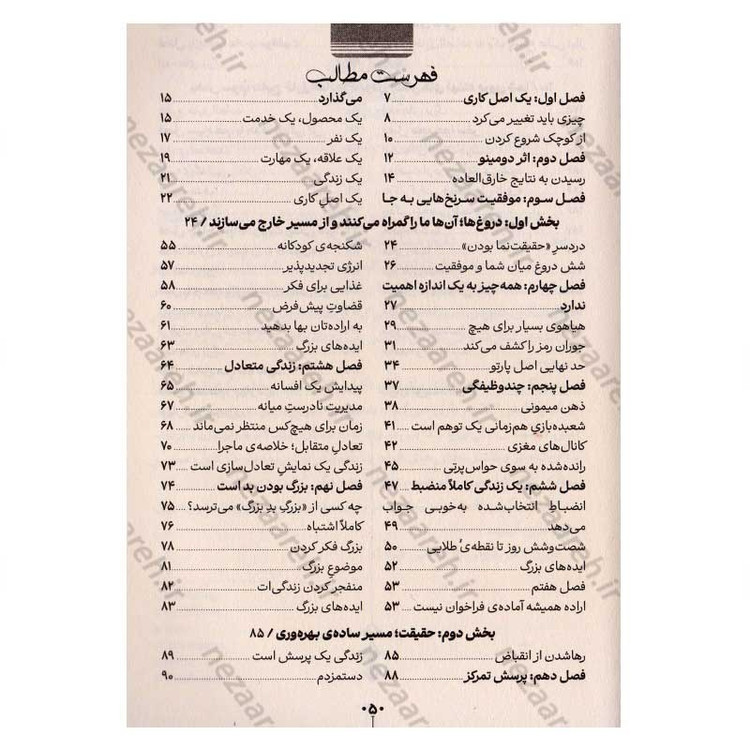 فهرست مطالب
فصل اول: یک اصل کاری ۷
چیزی باید تغییر می‌کرد ۸
از کوچک شروع کردن ۱۰
فصل دوم: اثر دومینو ۱۲
رسیدن به نتایج خارق‌العاده ۱۴
فصل سوم: موفقیت سرنخ‌هایی به جا
می‌گذارد ۱۵
یک محصول، یک خدمت ۱۵
یک نفر ۱۷
یک علاقه، یک مهارت ۱۹
یک زندگی ۲۱
یک اصلِ کاری ۲۲
بخش اول: دروغ‌ها؛ آن‌ها ما را گمراه می‌کنند و از مسیر خارج می‌سازند / ۲۴
دردسرِ «حقیقت‌نما بودن» ۲۴
شش دروغ میان شما و موفقیت ۲۶
فصل چهارم: همه‌چیز به یک اندازه اهمیت
ندارد ۲۷
هیاهوی بسیار برای هیچ ۲۹
جوران رمز را کشف می‌کند ۳۱
حد نهایی اصل پارتو ۳۴
فصل پنجم: چندوظیفگی ۳۷
ذهن میمونی ۳۸
شعبده‌بازیِ هم‌زمانی یک توهم است ۴۱
کانال‌های مغزی ۴۲
رانده‌شده به سوی حواس‌پرتی ۴۵
فصل ششم: یک زندگی کاملاً منضبط ۴۷
انضباطِ انتخاب‌شده به‌خوبی جواب
می‌دهد ۴۹
شصت‌وشش روز تا نقطه‌یُ طلایی ۵۰
ایده‌های بزرگ ۵۲
فصل هفتم ۵۳
اراده همیشه آماده‌ی فراخوان نیست ۵۳
شکنجه‌ی کودکانه ۵۵
انرژی تجدیدپذیر ۵۷
غذایی برای فکر ۵۸
قضاوتِ پیش‌فرض ۶۰
به اراده‌تان بها بدهید ۶۱
ایده‌های بزرگ ۶۳
فصل هشتم: زندگی متعادل ۶۴
پیدایش یک افسانه ۶۵
مدیریت نادرستِ میانه ۶۷
زمان برای هیچ‌کس منتظر نمی‌ماند ۶۸
تعادلِ متقابل؛ خلاصه‌ی ماجرا ۷۰
زندگی یک نمایشِ تعادل‌سازی است ۷۳
فصل نهم: بزرگ بودن بد است ۷۴
چه کسی از «بزرگِ بدِ بزرگ» می‌ترسد؟ ۷۵
کاملاً اشتباه ۷۶
بزرگ فکر کردن ۷۸
موضوعِ بزرگ ۸۱
منفجر کردن زندگی‌ات ۸۲
ایده‌های بزرگ ۸۳
بخش دوم: حقیقت؛ مسیر ساده‌ی بهره‌وری / ۸۵
رهاشدن از انقباض ۸۵
فصل دهم: پرسش تمرکز ۸۸
زندگی یک پرسش است ۸۹
دستمزدم ۹۰
۰۵۰
nezaareh.ir